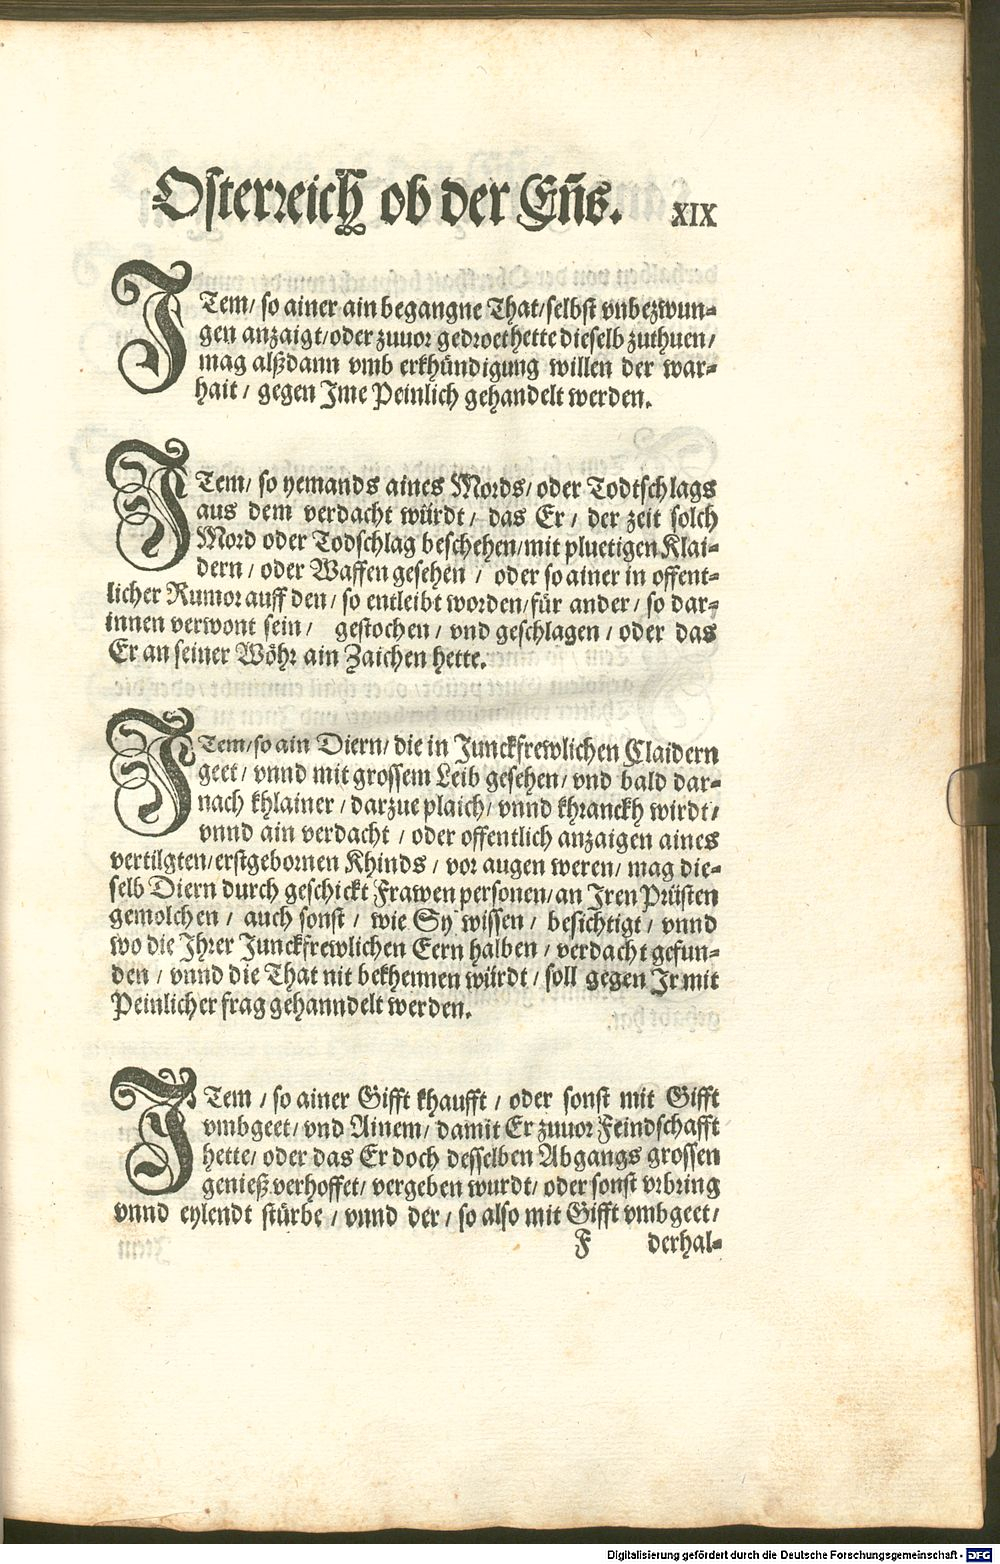 Osterreich ob der Eñs. XIX
ITem/ so ainer ain begangne That/ selbst vnbezwun-
gen anzaigt/ oder zuuor gedroet hette dieselb zuthuen/
mag alßdann vmb erkhündigung willen der war-
hait/ gegen Ime Peinlich gehandelt werden.
ITem/ so yemands aines Mords/ oder Todtschlags
aus dem verdacht würdt/ das Er/ der zeit solch
Mord oder Todschlag beschehen/ mit pluetigen Klai-
dern/ oder Waffen gesehen/ oder so ainer in offent-
licher Rumor auff den/ so entleibt worden/ für ander/ so dar-
innen verwont sein/ gestochen/ vnd geschlagen/ oder das
Er an seiner Wöhr ain Zaichen hette.
ITem/ so ain Diern/ die in Junckfrewlichen Claidern
geet/ vnnd mit grossem Leib gesehen/ vnd bald dar-
nach khlainer/ darzue plaich/ vnnd khranckh wirdt/
vnnd ain verdacht/ oder offentlich anzaigen aines
vertilgten/ erstgebornen Khinds/ vor augen weren/ mag die-
selb Diern durch geschickt Frawen personen/ an Iren Prüsten
gemolchen/ auch sonst/ wie Sy wissen/ besichtigt/ vnnd
wo die Ihrer Junckfrewlichen Eern halben/ verdacht gefun-
den/ vnnd die That nit bekhennen würdt/ soll gegen Ir mit
Peinlicher frag gehanndelt werden.
ITem/ so ainer Gifft khaufft/ oder sonst mit Gifft
vmbgeet/ vnd Ainem/ damit Er zuuor Feindschafft
hette/ oder das Er doch desselben Abgangs grossen
genieß verhoffet/ vergeben wurdt/ oder sonst vrbring
vnnd eylendt stürbe/ vnnd der/ so also mit Gifft vmbgeet/
F derhal-
Digitalisierung gefördert durch die Deutsche Forschungsgemeinschaft - DFG